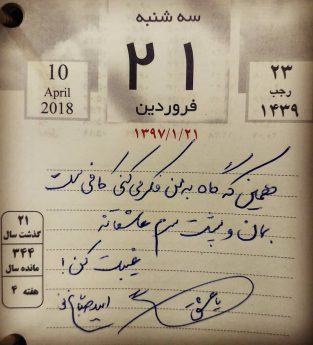 سه شنبه
۲۱
فروردین
۱۳۹۷/۱/۲۱
10
April
2018
۲۳
رجب
۱۴۳۹
همین که گاه به من فکر می کنی کافی ست
بمان و پشت سرم عاشقانه
غیبت کن!
۲۱
گذشت سال
۳۴۴
مانده سال
هفته ۴